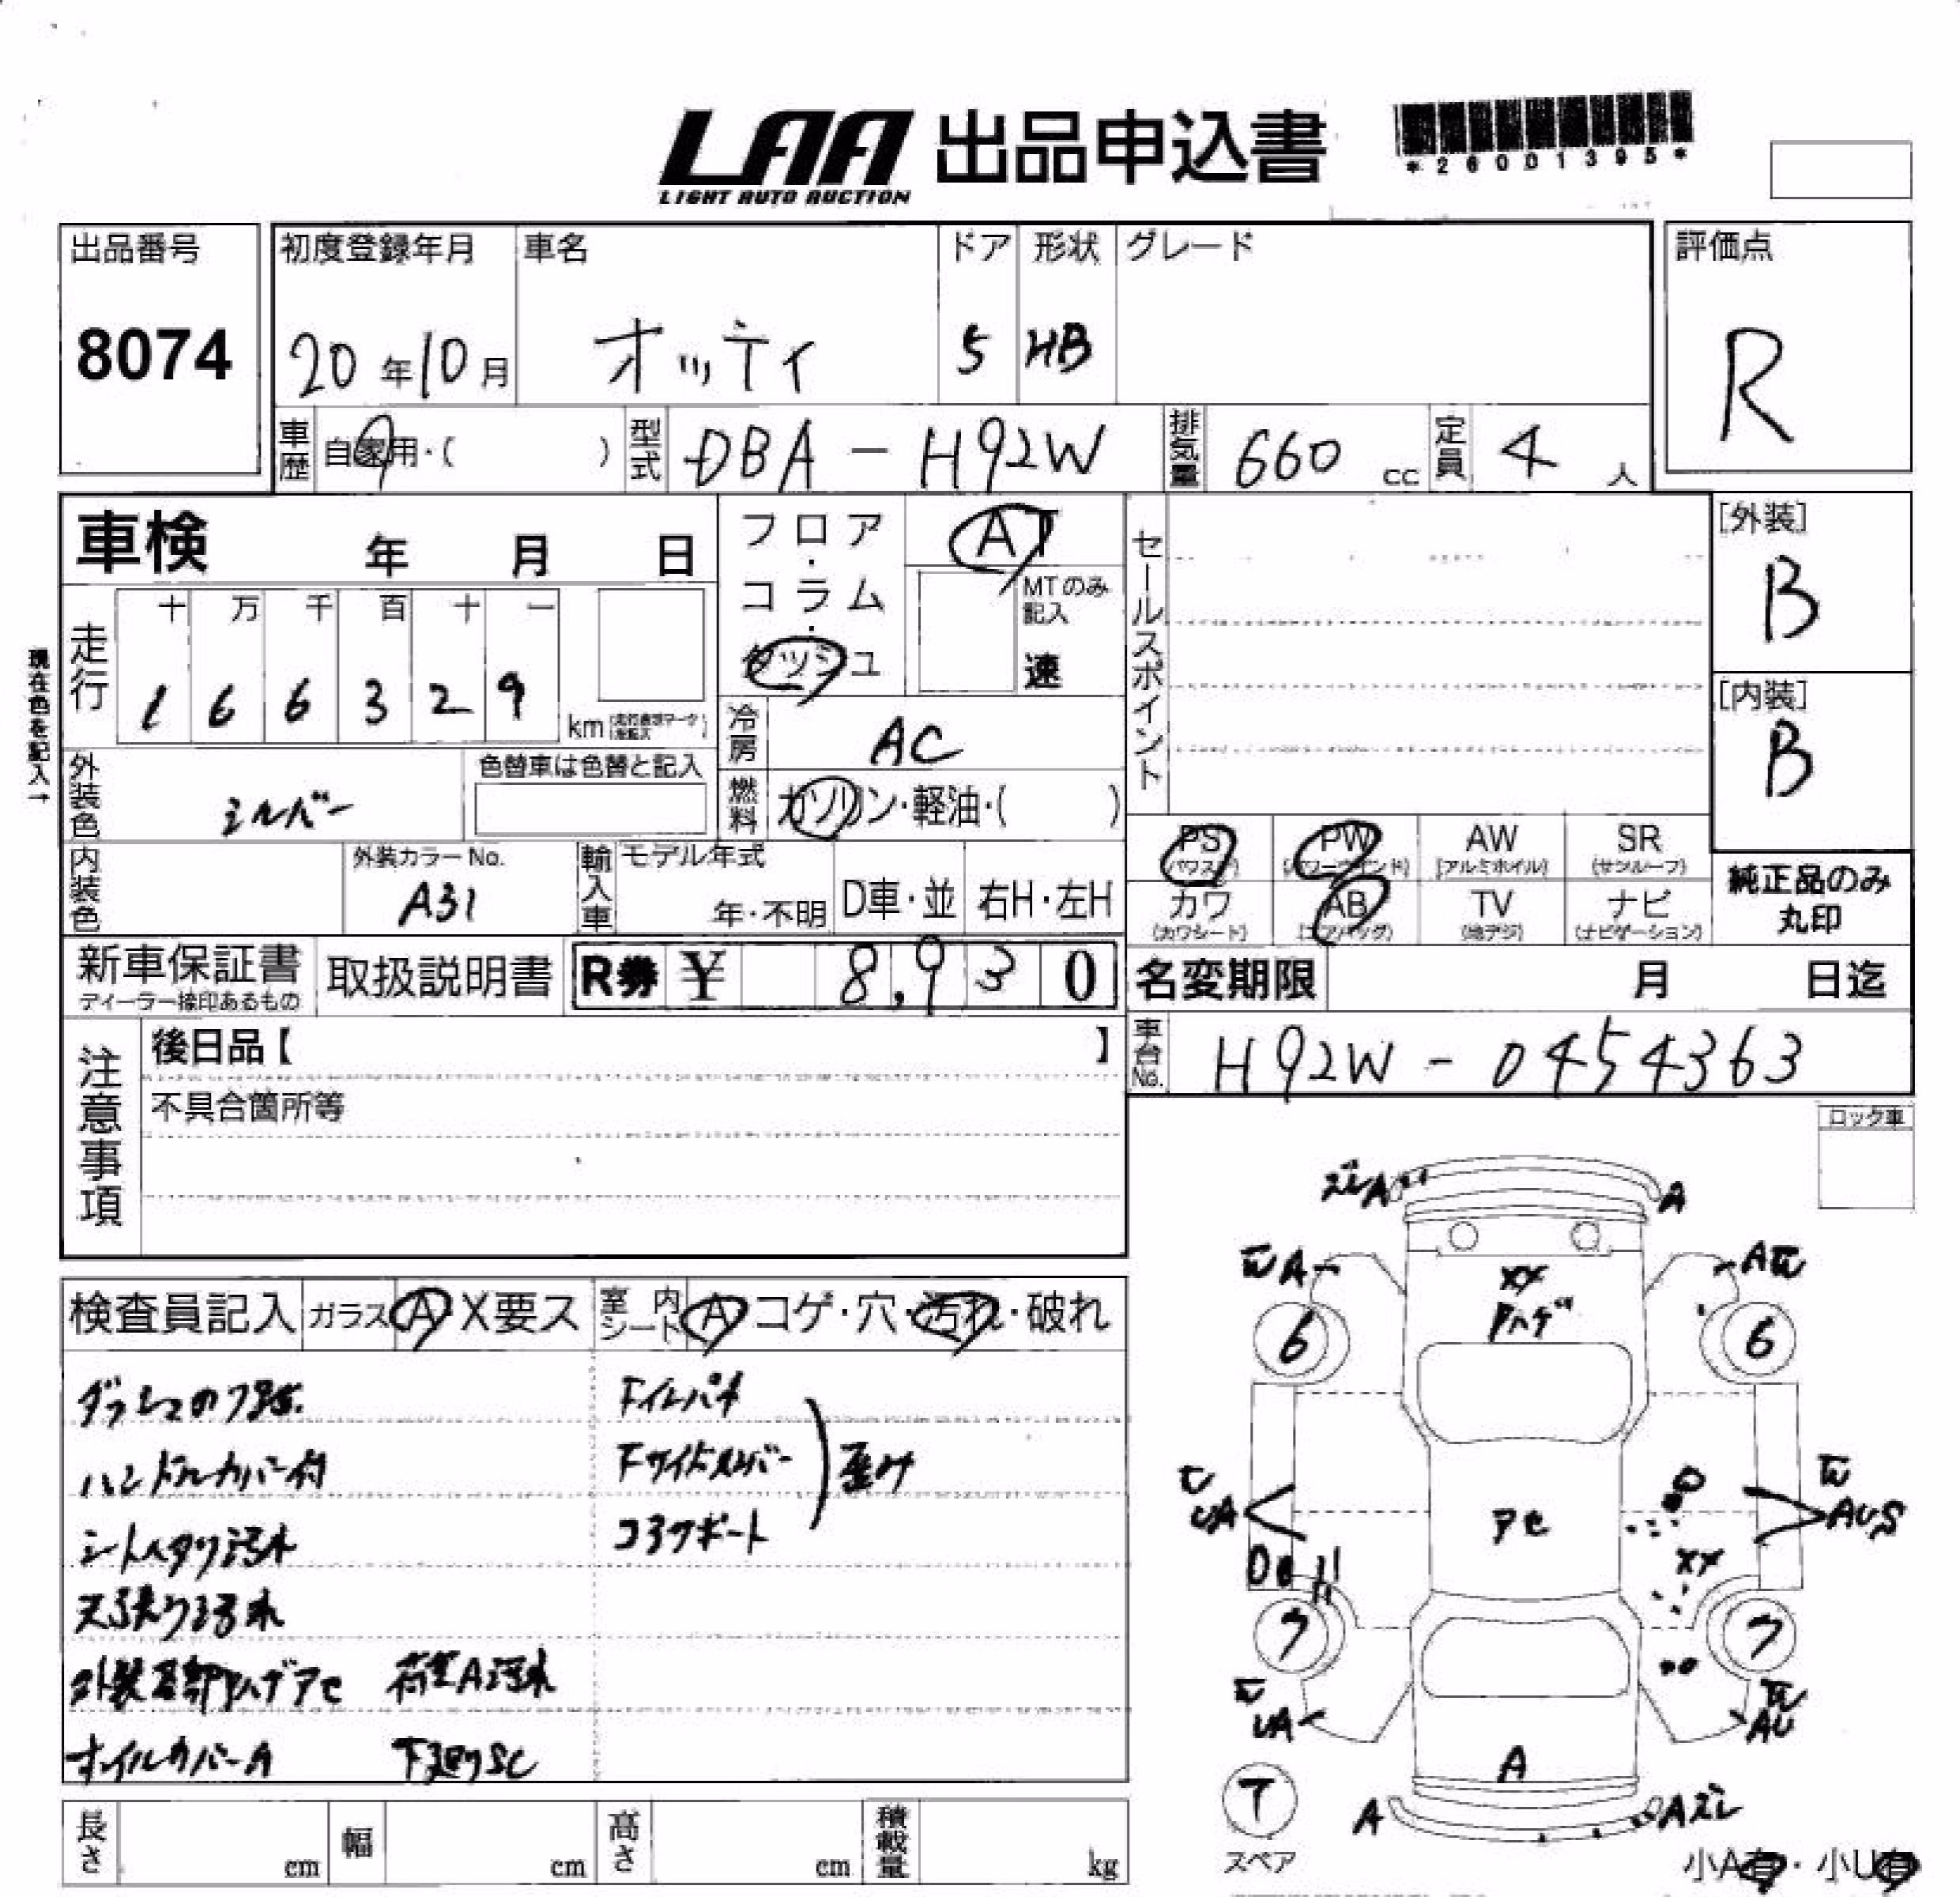 LAA 出品申込書
LIGHT AUTO AUCTION
*26001395*
出品番号
8074
初度登録年月
20年10月
車名
オッティ
ドア
5
形状
HB
グレード
評価点
R
車歴 自家用・( )
型式 DBA-H92W
排気量 660 cc
定員 4 人
車検 年 月 日
フロア・コラム・ダッシュ
AT
MTのみ記入
速
セールスポイント
[外装]
B
[内装]
B
現在色を記入→
走行
十 万 千 百 十 一
1 6 6 3 2 9
km
冷房 AC
外装色 シルバー
色替車は色替と記入
燃料 ガソリン・軽油・( )
PS (パワステ)
PW (パワーウインド)
AW (アルミホイル)
SR (サンルーフ)
カワ (カワシート)
AB (エアバッグ)
TV (地デジ)
ナビ (ナビゲーション)
純正品のみ
丸印
内装色
外装カラーNo.
A31
輸入車
モデル年式
年・不明
D車・並
右H・左H
新車保証書
ディーラー捺印あるもの
取扱説明書
R券 ¥ 8,930
名変期限 月 日迄
車台No. H92W-0454363
注意事項
後日品【 】
不具合箇所等
ロック車
検査員記入
ガラス A・X要ス
室内シート A・コゲ・穴・汚れ・破れ
ハンドルカバー付
シートヘタリ汚れ
天張り汚れ
外装各部Pハゲアセ 荷室A汚れ
オイルカバーA 下廻りSC
Fインパネ
Fサイドメンバー
コアサポート
歪み
ズレA
A
WA
AW
XX
Pハゲ
6
6
アセ
UA
W
AUS
XX
7
7
W
UA
W
AU
A
A
Aズレ
T
スペア
小A有・小U有
長さ cm
幅 cm
高さ cm
積載量 kg